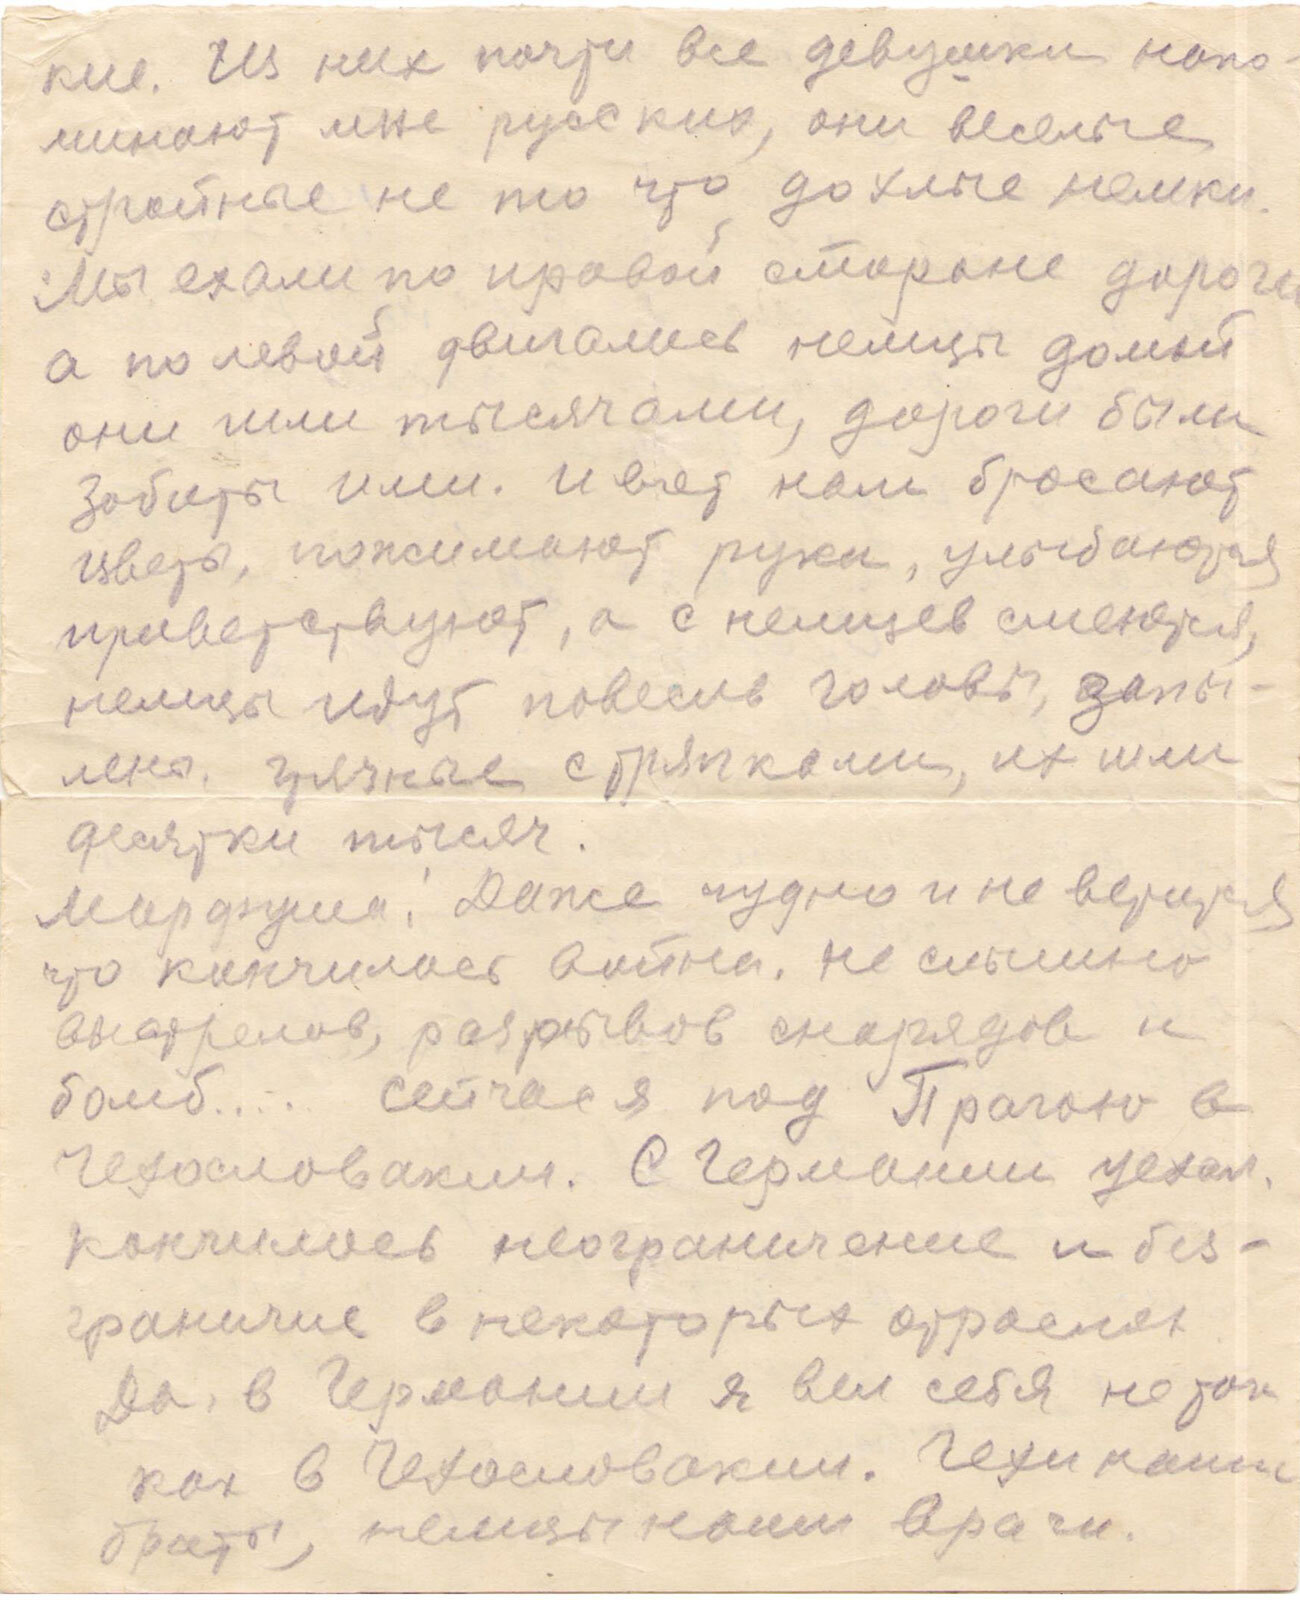 кие. Из них почти все девушки напо-
минают мне русских, они веселые
стройные не то что дохлые немки.
Мы ехали по правой стороне дороги
а по левой двигались немцы домой
они шли тысячами, дороги были
забиты ими. И вот нам бросают
цветы, пожимают руки, улыбаются
приветствуют, а с немцев смеются,
немцы идут повесив головы, запы-
лены. грязные с тряпками, их шли
десятки тысяч.
Марфуша! Даже чудно и не верится
что кончилась война. Не слышно
выстрелов, разрывов снарядов и
бомб.... Сейчас я под Прагою в
Чехословакии. С Германии уехал.
кончилось неограничение и без-
граничие в некоторых отраслях
Да, в Германии я вел себя не так
как в Чехословакии. Чехи наши
браты, немцы наши враги.